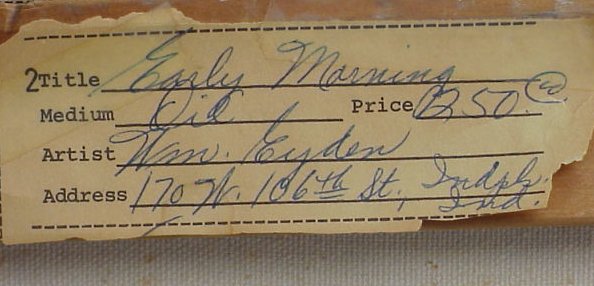 2Title Early Morning
Medium Oil Price 250.00
Artist Wm. Eyden
Address 170 W. 106th St., Indpls.
Ind.